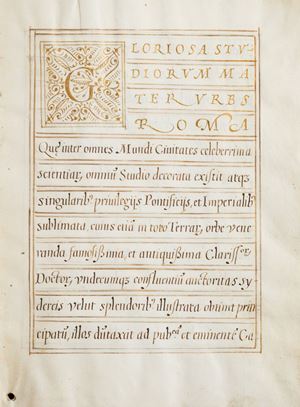 GLORIOSA STU/
DIORVM MA
TER VRBS
ROMA
Quę inter omnes Mundi Ciuitates celeberrima
scientiar, omniũ Studio decorata existit atqꝫ
singularibꝰ priuilegijs Pontificijs, et Imperialibꝰ
sublimata, cuius etiã in toto Terrar, orbe vene
randa famosissima, et antiquissima Clarissᵒʳ,
Doctor, vndecumqꝫ confluentiũ auctoritas Sy
dereis velut splendoribꝰ illustrata obtinet prin
cipatũ, illos dũtaxat ad pubᶜᵃ et eminentē Ca